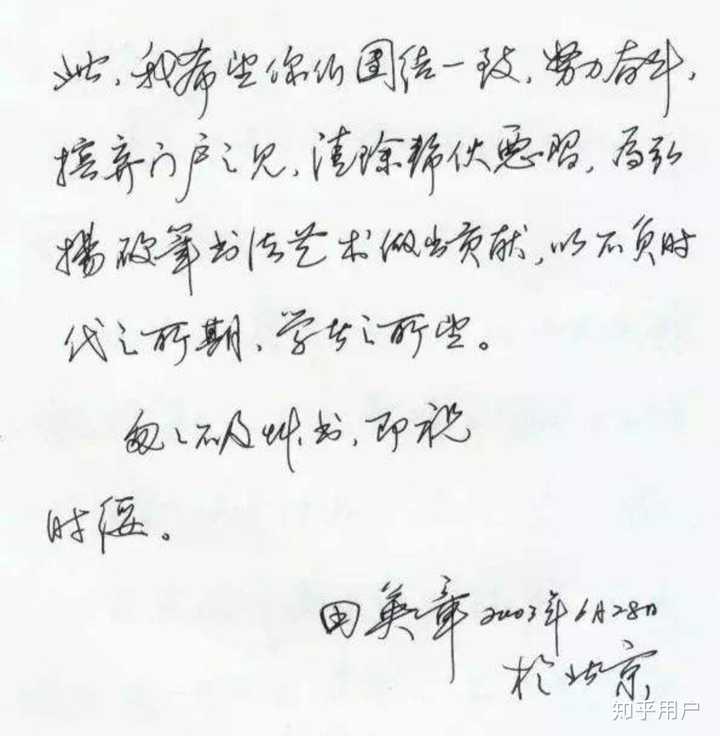 此，我希望你们团结一致，努力奋斗，
摈弃门户之见，清除帮伙恶习，为弘
扬硬笔书法艺术做出贡献，以不负时
代之所期，学者之所望。
匆匆不及草书，即祝
时绥。
田英章2003年6月28日
于北京
知乎用户